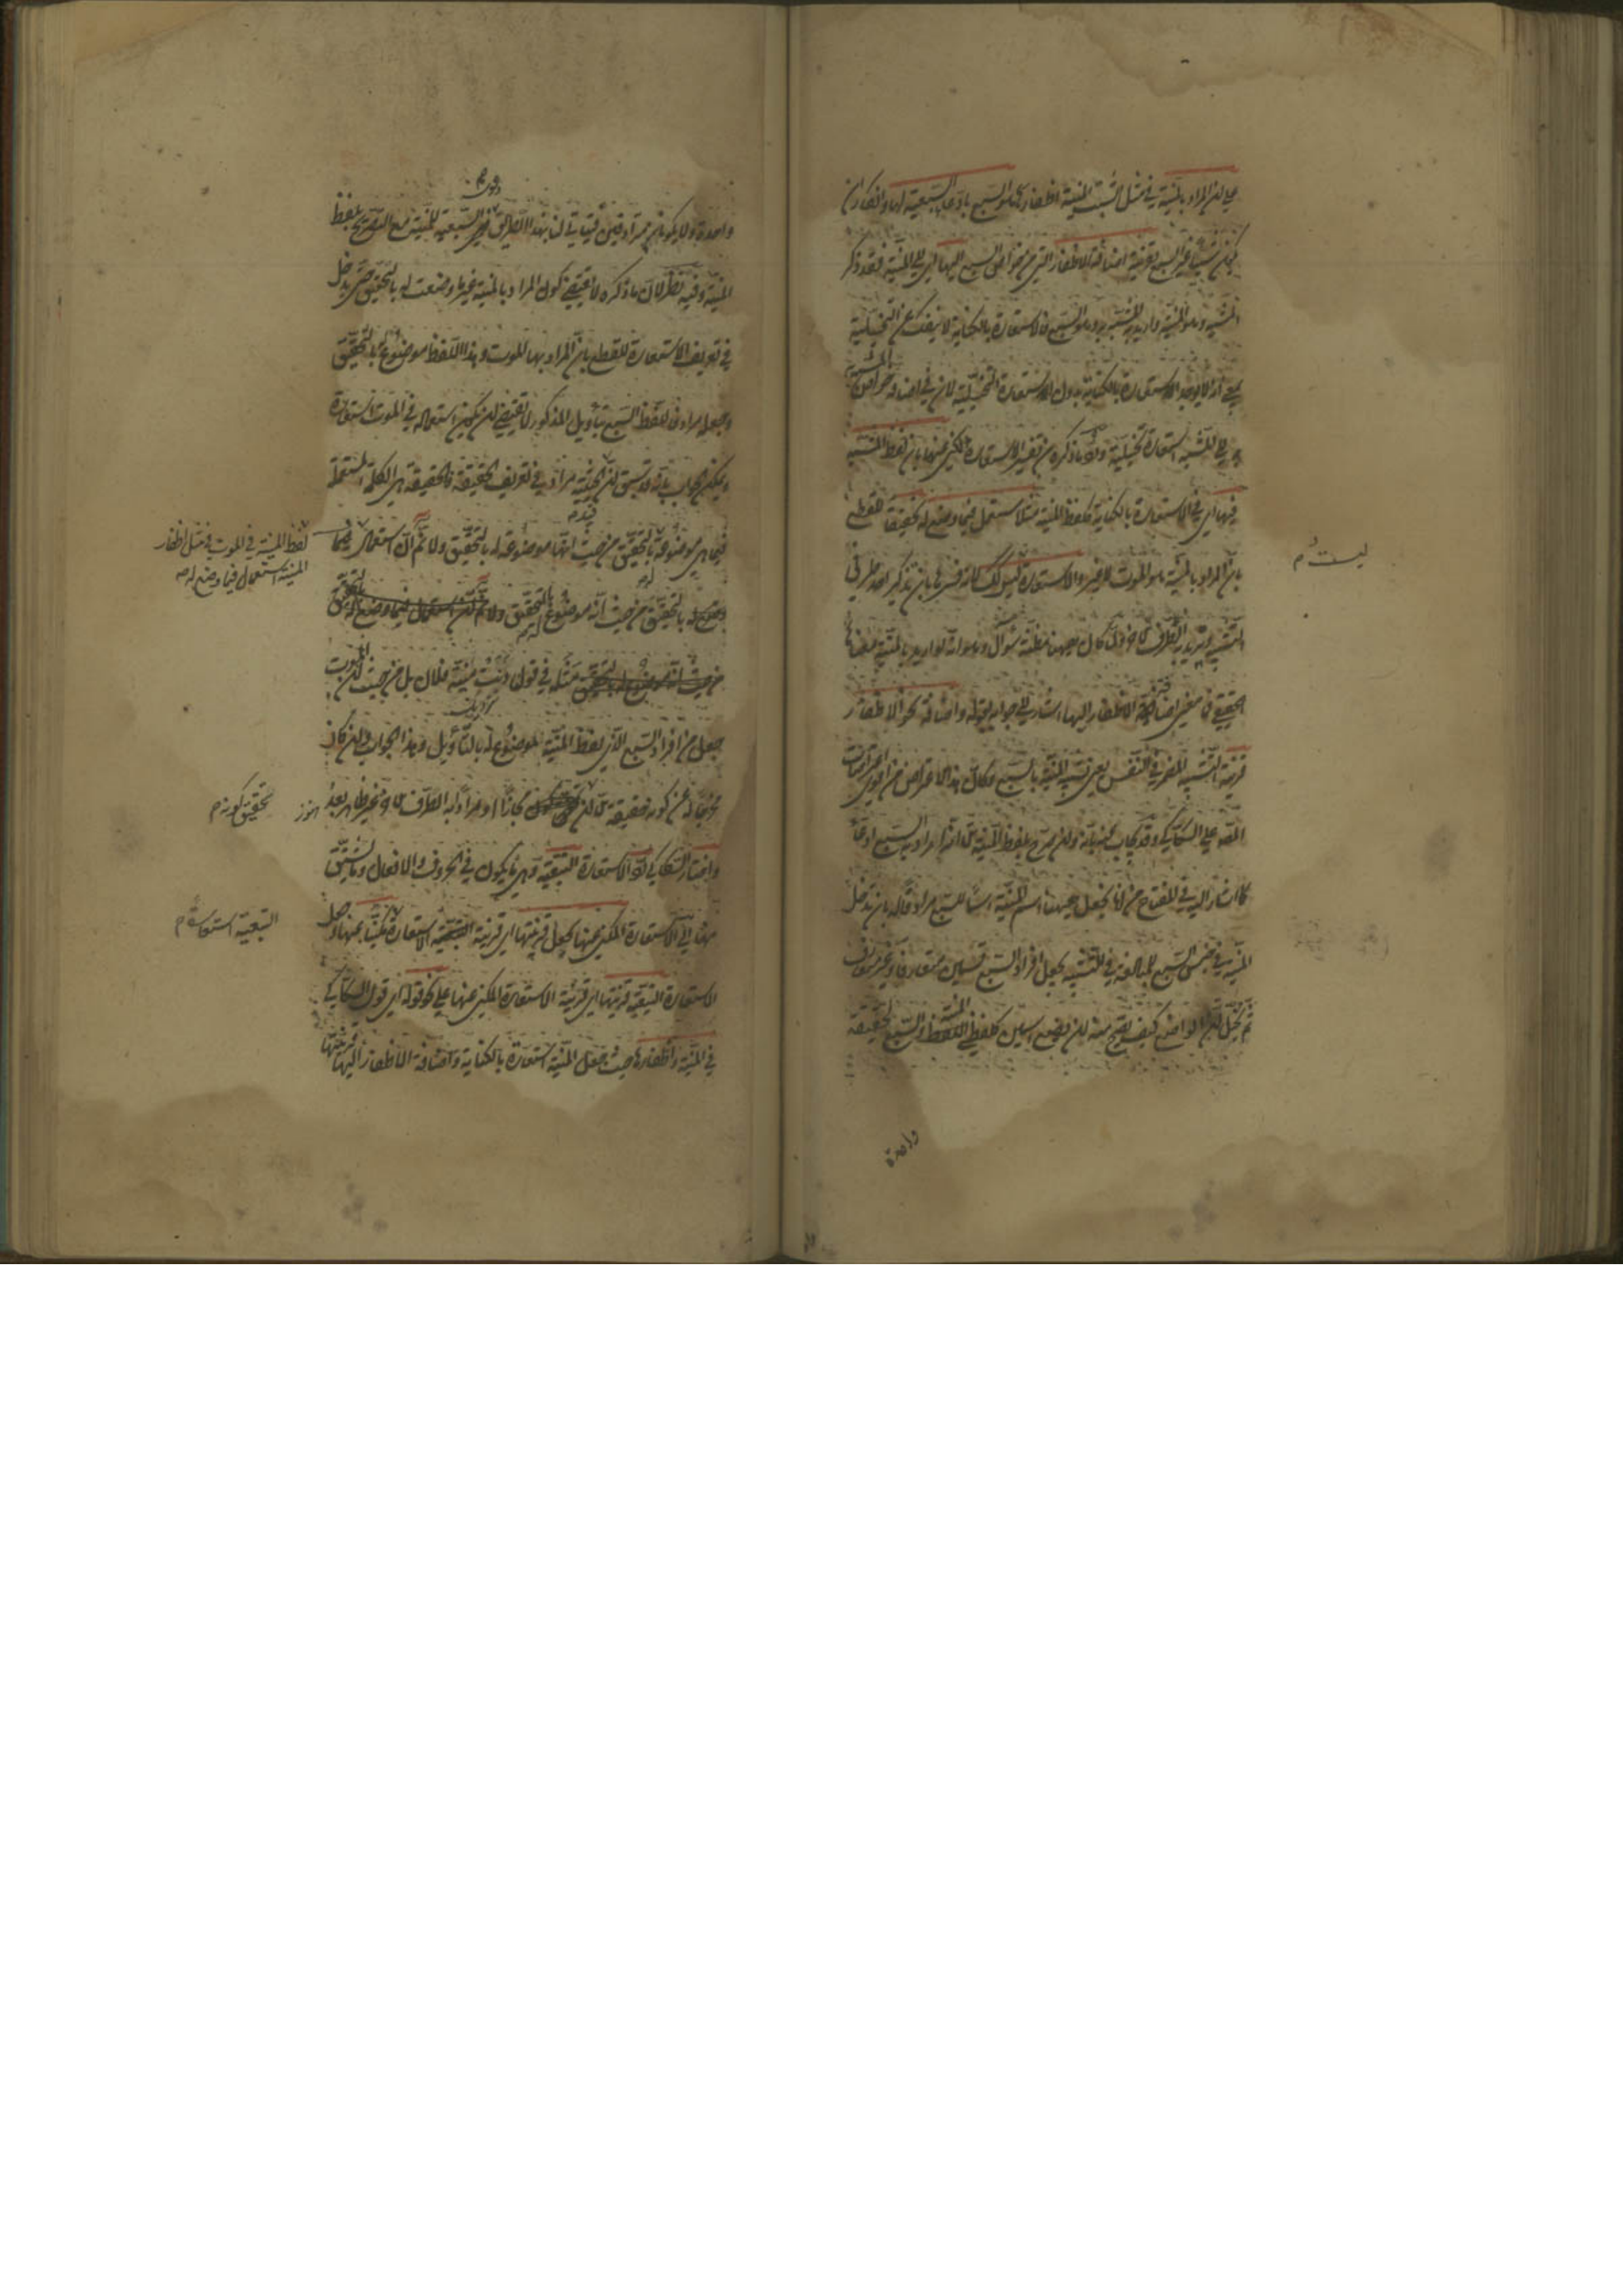 على ان المراد بالمنية في مثل انشبت المنية اظفارها هو السبع بادعاء السبعية لها وانكار ان
يكون شيئا غير السبع بقرينة اضافة الاظفار التي من خواص السبع اليها اي الى المنية فقد ذكر
المشبه وهو المنية واريد به المشبه به وهو السبع فالاستعارة بالكناية لا ينفك عن التخييلية
بمعنى انه لا يوجد الاستعارة بالكناية بدون الاستعارة التخييلية لان في اضافة خواص المشبه
به الى المشبه استعارة تخييلية ورد ما ذكره من تفسير الاستعارة المكني عنها بان لفظ المشبه
فيها اي في الاستعارة بالكناية كلفظ المنية مثلا مستعمل فيما وضع له تحقيقا للقطع
بان المراد بالمنية هو الموت لا غير والاستعارة ليس كذلك لانه فسرها بان تذكر احد طرفي
التشبيه وتريد به الطرف الاخر ولما كان ههنا مظنة سؤال وهو انه لو اريد بالمنية معناها
الحقيقي فما معنى اضافة الاظفار اليها اشار الى جوابه بقوله واضافة نحو الاظفار
قرينة التشبيه المضمر في النفس يعني تشبيه المنية بالسبع وكان هذا الاعتراض من اقوى اعتراضات
المص على السكاكي وقد يجاب عنه بانه وان صرح بلفظ المنية الا ان المراد به السبع ادعاء
كما اشار اليه في المفتاح من انا نجعل ههنا اسم المنية اسما للسبع مرادفا له بان تدخل
المنية في جنس السبع للمبالغة في التشبيه بجعل افراد السبع قسمين متعارفا وغير متعارف
ثم يخيل ان الواضع كيف يصح منه ان يضع اسمين كلفظي المنية والسبع لحقيقة
واحدة
ليست م
واحدة ولا يكونان مترادفين فيتاتى لنا بهذا الطريق دعوى السبعية للمنية مع التصريح بلفظ
المنية وفيه نظر لان ما ذكره لا يقتضي كون المراد بالمنية غير ما وضعت له بالتحقيق حتى يدخل
في تعريف الاستعارة للقطع بان المراد بها الموت وهذا اللفظ موضوع له بالتحقيق
وجعله مرادفا للفظ السبع بتأويل المذكور لا يقتضي ان يكون استعماله في الموت استعارة
ويمكن الجواب بانه قد سبق ان قيد الحيثية مراد في تعريف الحقيقة فالحقيقة هي الكلمة المستعملة
فيما هي موضوعة له بالتحقيق من حيث انها موضوعة له بالتحقيق ولا نم ان استعمال
لفظ المنية في الموت في مثل اظفار
المنية استعمال فيما وضع له صح
بالتحقيق من حيث انه موضوع له بالتحقيق
مثله في قولنا دنت منية فلان بل من حيث ان الموت
جعل من افراد السبع الذي لفظ المنية موضوع له بالتأويل وهذا الجواب وان كان
مخرجا له عن كونه حقيقة الا ان تحقيق كونه مجازا او مرادا به الطرف الاخر غير ظاهر بعد
تحقيق كونه م
واختار السكاكي رد الاستعارة التبعية وهي ما يكون في الحروف والافعال وما يشتق
منها الى الاستعارة المكني عنها بجعل قرينتها اي قرينة التبعية استعارة مكنيا عنها وجعل
التبعية استعارة م
الاستعارة التبعية قرينتها اي قرينة الاستعارة المكني عنها على نحو قوله اي قول السكاكي
في المنية واظفارها حيث جعل المنية استعارة بالكناية واضافة الاظفار اليها قرينتها